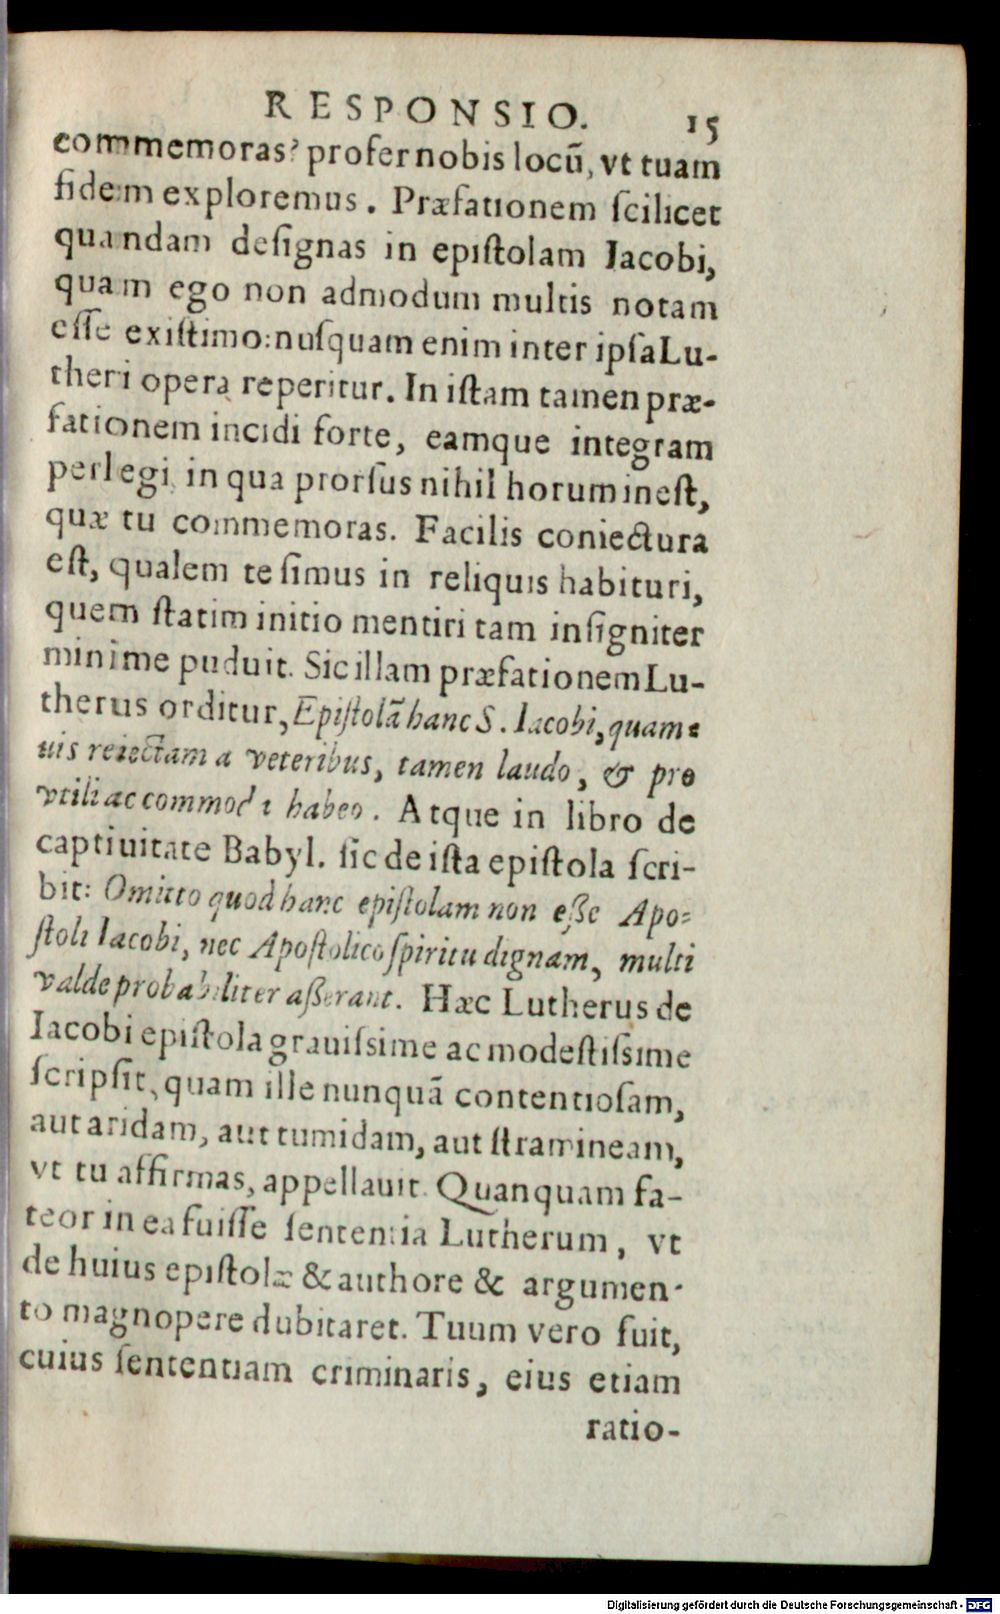 RESPONSIO. 15
commemoras? profer nobis locū, vt tuam
fidem exploremus. Præfationem ſcilicet
quandam deſignas in epiſtolam Iacobi,
quam ego non admodum multis notam
eſſe exiſtimo: nuſquam enim inter ipſa Lu-
theri opera reperitur. In iſtam tamen præ-
fationem incidi forte, eamque integram
perlegi, in qua prorſus nihil horum ineſt,
quæ tu commemoras. Facilis coniectura
eſt, qualem te ſimus in reliquis habituri,
quem ſtatim initio mentiri tam inſigniter
minime puduit. Sic illam præfationem Lu-
therus orditur, Epiſtolā hanc S. Iacobi, quam-
uis reiectam a veteribus, tamen laudo, & pro
vtili ac commoda habeo. Atque in libro de
captiuitate Babyl. ſic de iſta epiſtola ſcri-
bit: Omitto quod hanc epiſtolam non eſſe Apo-
ſtoli Iacobi, nec Apoſtolico ſpiritu dignam, multi
valde probabiliter aſſerant. Hæc Lutherus de
Iacobi epiſtola grauiſsime ac modeſtiſsime
ſcripſit, quam ille nunquā contentioſam,
aut aridam, aut tumidam, aut ſtramineam,
vt tu affirmas, appellauit. Quanquam fa-
teor in ea fuiſſe ſententia Lutherum, vt
de huius epiſtolæ & authore & argumen-
to magnopere dubitaret. Tuum vero fuit,
cuius ſententiam criminaris, eius etiam
ratio-
Digitalisierung gefördert durch die Deutsche Forschungsgemeinschaft - DFG